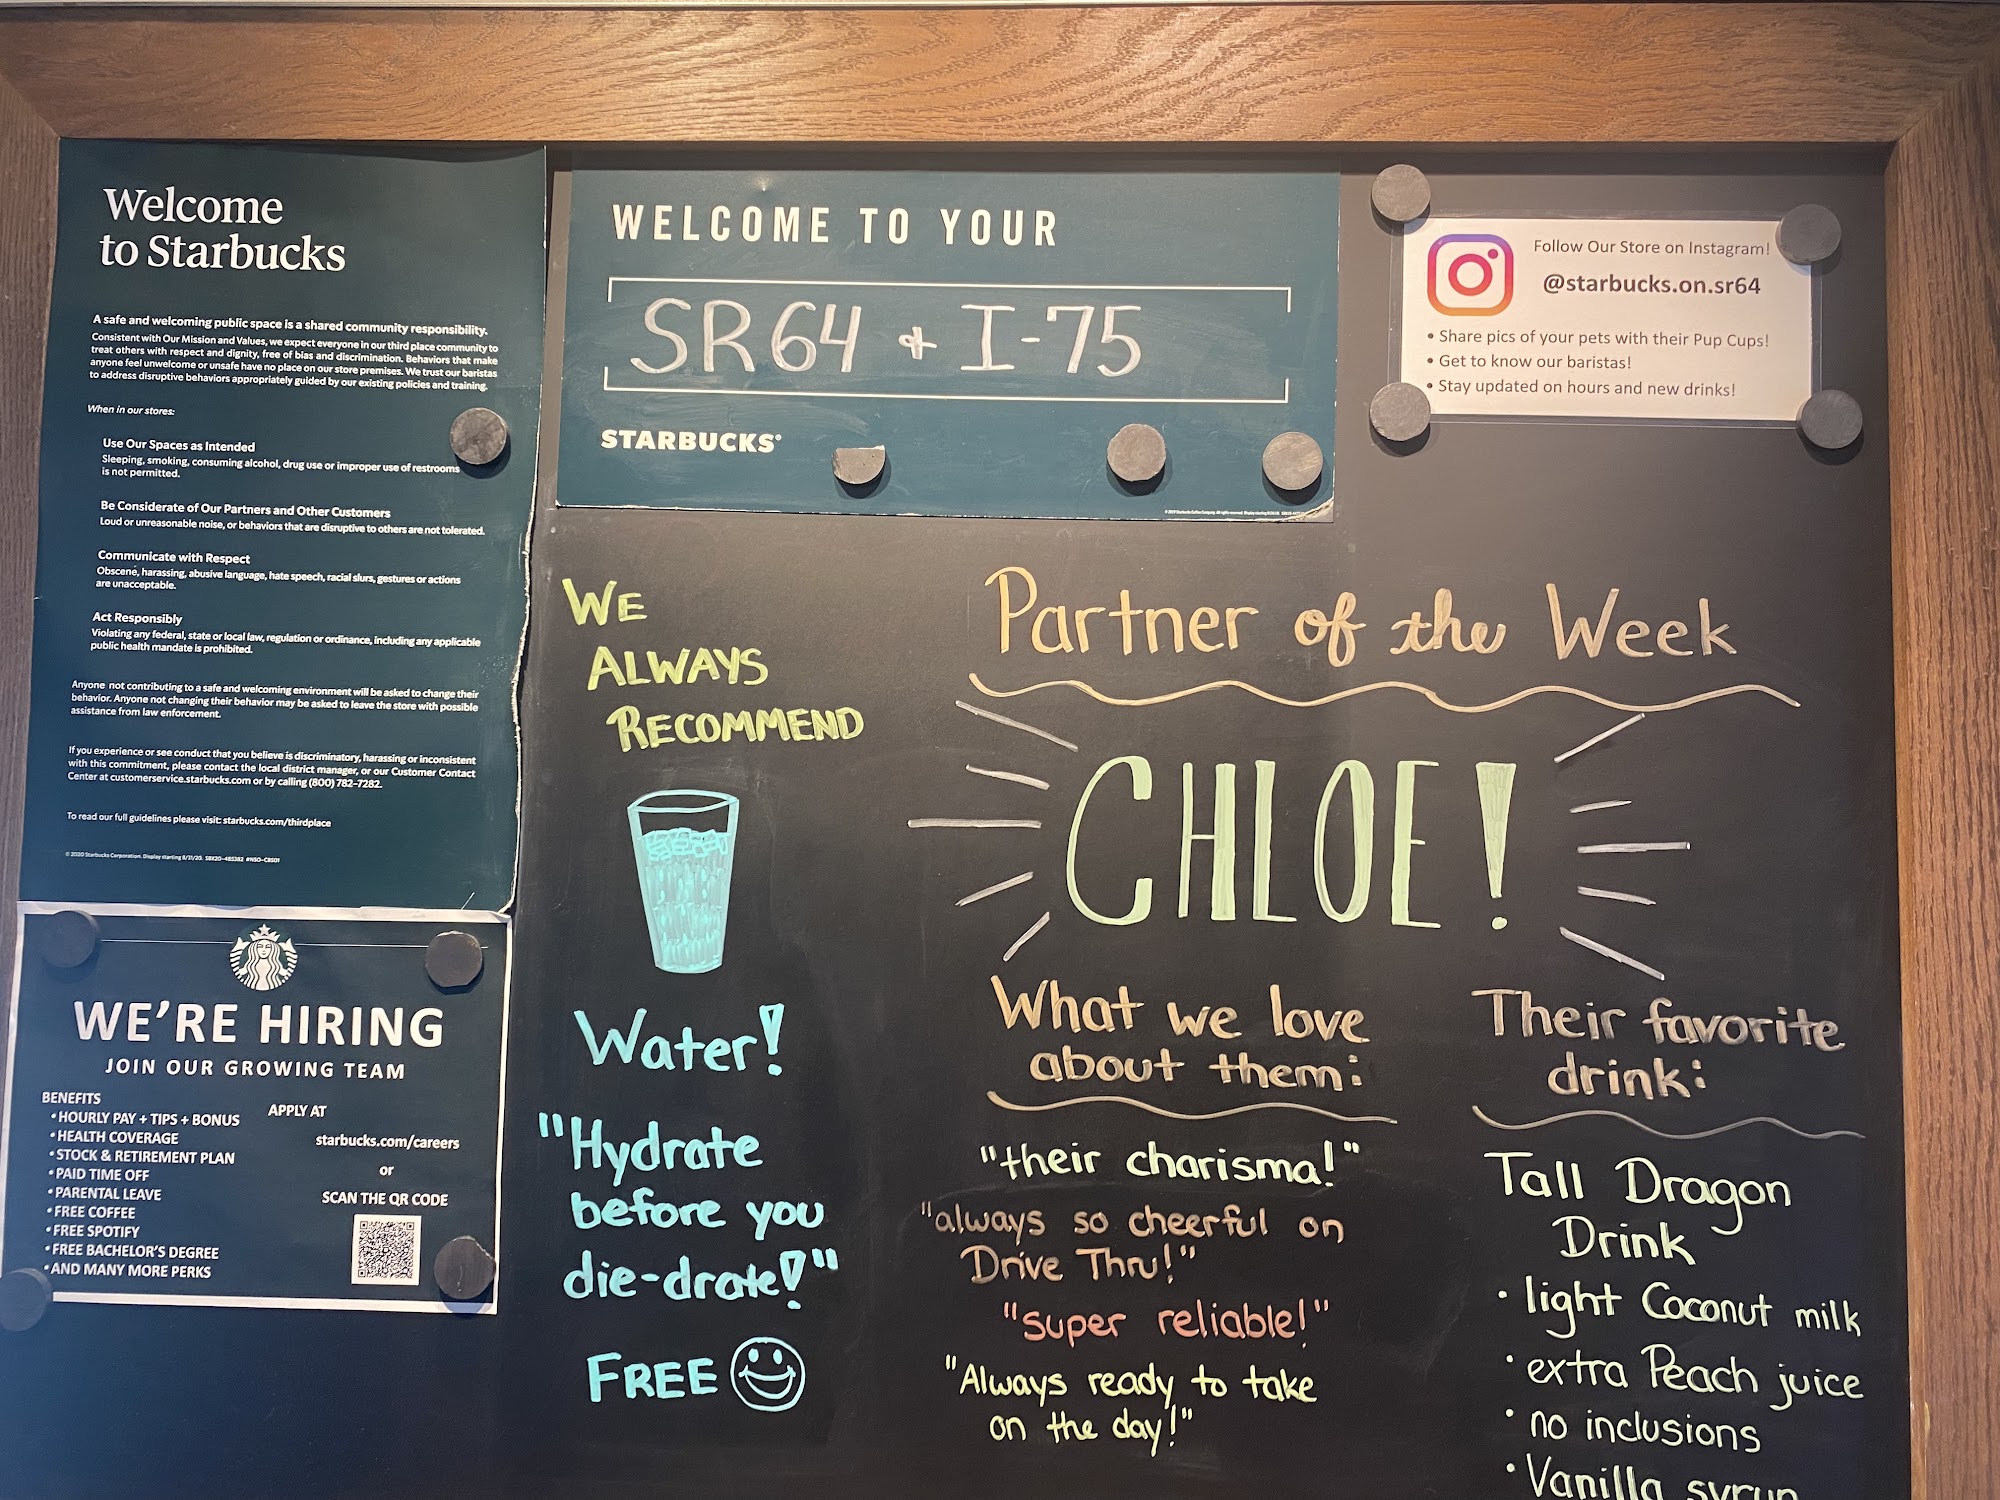 Welcome
to Starbucks
A safe and welcoming public space is a shared community responsibility.
Consistent with Our Mission and Values, we expect everyone in our third place community to
treat others with respect and dignity, free of bias and discrimination. Behaviors that make
anyone feel unwelcome or unsafe have no place on our store premises. We trust our baristas
to address disruptive behaviors appropriately guided by our existing policies and training.
When in our stores:
Use Our Spaces as Intended
Sleeping, smoking, consuming alcohol, drug use or improper use of restrooms
is not permitted.
Be Considerate of Our Partners and Other Customers
Loud or unreasonable noise, or behaviors that are disruptive to others are not tolerated.
Communicate with Respect
Obscene, harassing, abusive language, hate speech, racial slurs, gestures or actions
are unacceptable.
Act Responsibly
Violating any federal, state or local law, regulation or ordinance, including any applicable
public health mandate is prohibited.
Anyone not contributing to a safe and welcoming environment will be asked to change their
behavior. Anyone not changing their behavior may be asked to leave the store with possible
assistance from law enforcement.
If you experience or see conduct that you believe is discriminatory, harassing or inconsistent
with this commitment, please contact the local district manager, or our Customer Contact
Center at customerservice.starbucks.com or by calling (800) 782-7282.
To read our full guidelines please visit: starbucks.com/thirdplace
© 2020 Starbucks Corporation. Display starting 8/31/20. SBX20-485382 #NSO-CBS01
WE'RE HIRING
JOIN OUR GROWING TEAM
BENEFITS
• HOURLY PAY + TIPS + BONUS
• HEALTH COVERAGE
• STOCK & RETIREMENT PLAN
• PAID TIME OFF
• PARENTAL LEAVE
• FREE COFFEE
• FREE SPOTIFY
• FREE BACHELOR'S DEGREE
• AND MANY MORE PERKS
APPLY AT
starbucks.com/careers
or
SCAN THE QR CODE
WELCOME TO YOUR
SR64 + I-75
STARBUCKS®
Follow Our Store on Instagram!
@starbucks.on.sr64
• Share pics of your pets with their Pup Cups!
• Get to know our baristas!
• Stay updated on hours and new drinks!
WE
ALWAYS
RECOMMEND
Water!
"Hydrate
before you
die-drate!"
FREE
Partner of the Week
CHLOE!
What we love
about them:
"their charisma!"
"always so cheerful on
Drive Thru!"
"super reliable!"
"Always ready to take
on the day!"
Their favorite
drink:
Tall Dragon
Drink
• light Coconut milk
• extra Peach juice
• no inclusions
• Vanilla syrup